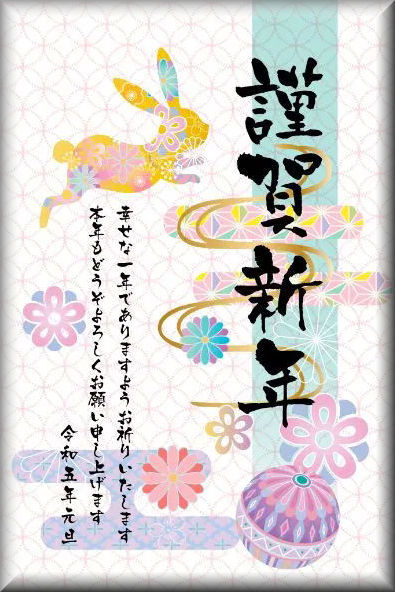 謹賀新年
幸せな一年でありますようお祈りいたします
本年もどうぞよろしくお願い申し上げます
令和五年元旦